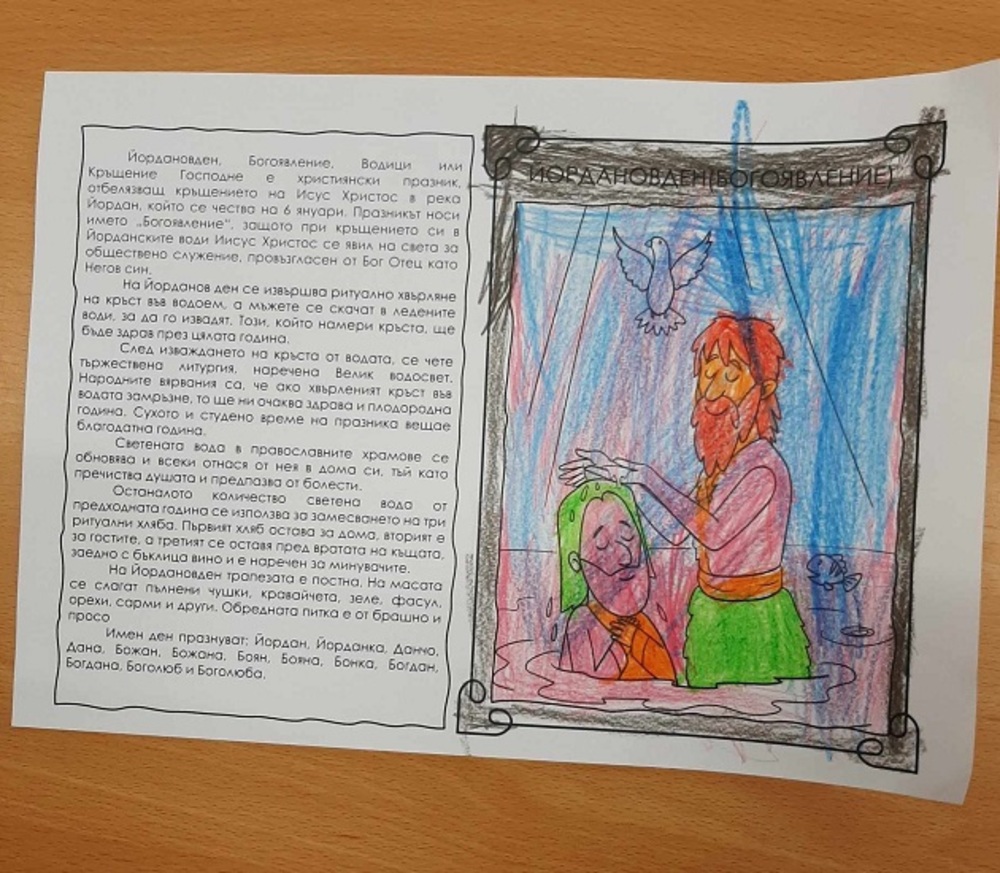 Йордановден, Богоявление, Водици или
Кръщение Господне е християнски празник,
отбелязващ кръщението на Исус Христос в река
Йордан, който се чества на 6 януари. Празникът носи
името „Богоявление“, защото при кръщението си в
Йорданските води Иисус Христос се явил на света за
обществено служение, провъзгласен от Бог Отец като
Негов син.
На Йорданов ден се извършва ритуално хвърляне
на кръст във водоем, а мъжете се скачат в ледените
води, за да го извадят. Този, който намери кръста, ще
бъде здрав през цялата година.
След изваждането на кръста от водата, се чете
тържествена литургия, наречена Велик водосвет.
Народните вярвания са, че ако хвърленият кръст във
водата замръзне, то ще ни очаква здрава и плодородна
година. Сухото и студено време на празника вещае
благодатна година.
Светената вода в православните храмове се
обновява и всеки отнася от нея в дома си, тъй като
пречиства душата и предпазва от болести.
Останалото количество светена вода от
предходната година се използва за замесването на три
ритуални хляба. Първият хляб остава за дома, вторият е
за гостите, а третият се оставя пред вратата на къщата,
заедно с бъклица вино и е наречен за минувачите.
На Йордановден трапезата е постна. На масата
се слагат пълнени чушки, кравайчета, зеле, фасул,
орехи, сарми и други. Обредната питка е от брашно и
просо
Имен ден празнуват: Йордан, Йорданка, Данчо,
Дана, Божан, Божана, Боян, Бояна, Бонка, Богдан,
Богдана, Боголюб и Боголюба.
ЙОРДАНОВДЕН(БОГОЯВЛЕНИЕ)